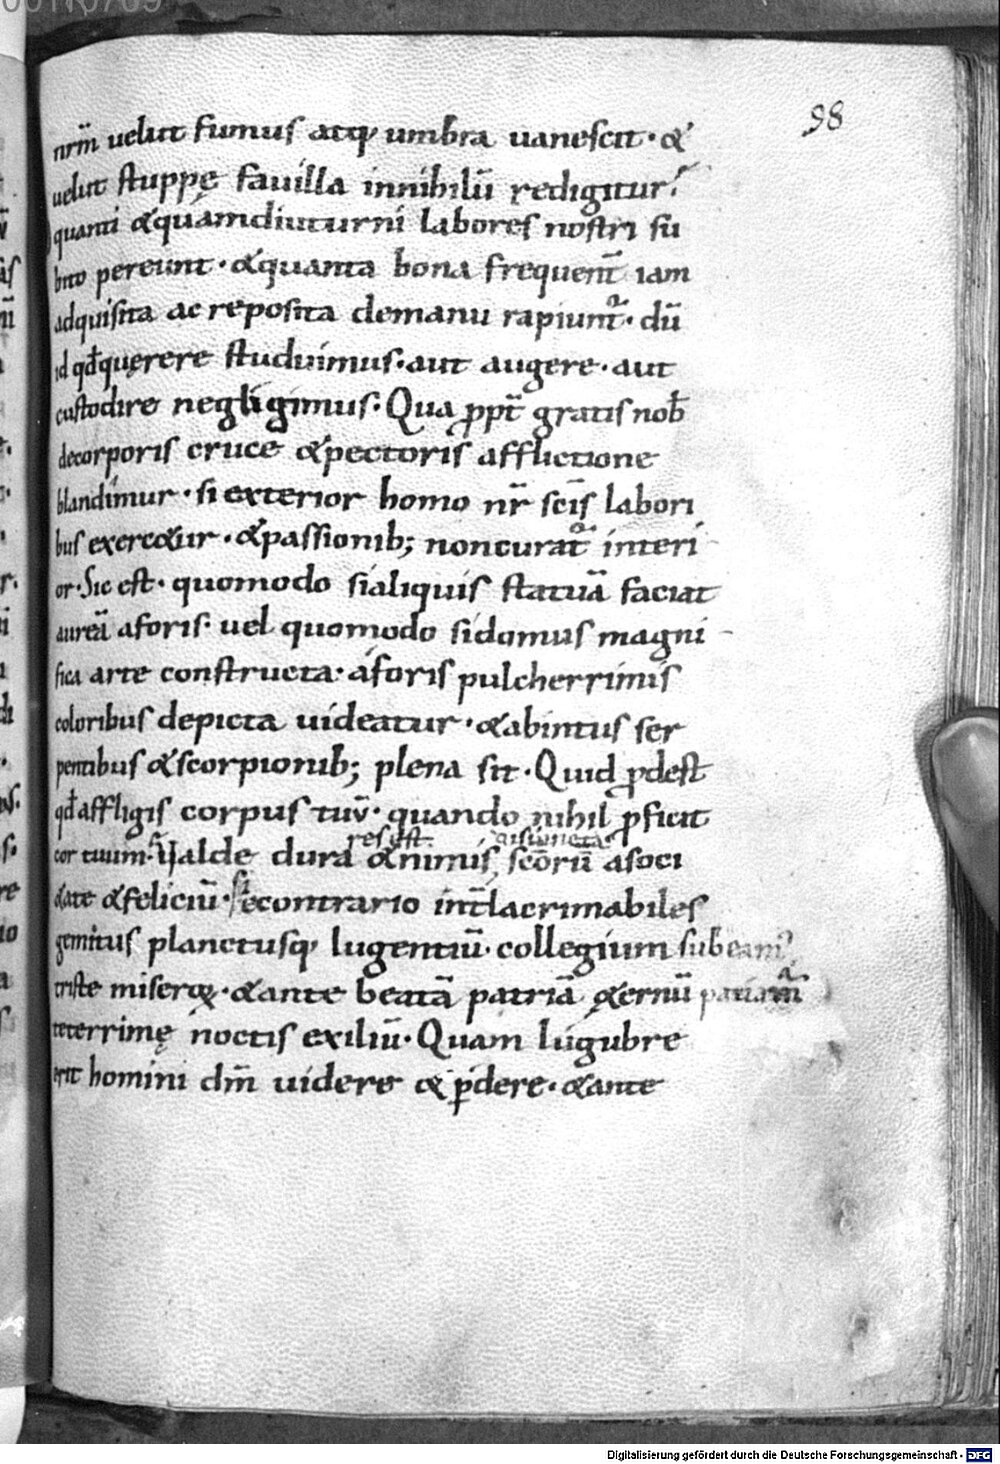 98
nrm̄ uelut fumus atq; umbra uanescit · &
uelut stuppę fauilla innihilū redigitur?
quanti &quamdiuturni labores nostri su
bito pereunt · &quanta bona frequent̄ iam
adquisita ac reposita demanu rapiunt᷑ · dū
id qđ quęrere studuimus · aut augere · aut
custodire negligimus · Qua ꝓpt̄ gratis nob̄
decorporis cruce &pectoris afflictione
blandimur · si exterior homo nr̄ scīs labori
bus exerc&ur · &passionib; noncurat᷑ interi
or · Sic est · quomodo sialiquis statuā faciat
aureā aforis · uel quomodo sidomus magni-
fica arte constructa · aforis pulcherrimis
coloribus depicta uideatur · &abintus ser
pentibus &scorpionib; plena sit · Quid ꝓdest
qđ affligis corpus tuū · quando nihil ꝓficit
res est
cor tuum · Valde dura &nimis, scōrū asoci
&ate &feliciū · si econtrario int̄ lacrimabiles
gemitus planctusq; lugentiū · collegium subeam᷑
triste miseroꝝ · &ante beatā patriā &ernū patiam᷑
teterrimę noctis exiliū · Quam lugubre
erit homini dm̄ uidere & ꝑdere · &ante
Digitalisierung gefördert durch die Deutsche Forschungsgemeinschaft - DFG